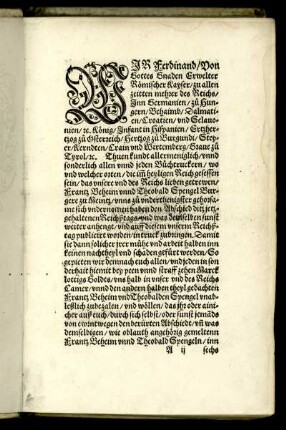 WJR Ferdinand/ Von
Gottes Gnaden Erwelter
Römischer Kayser/ zu allen
zeitten mehrer des Reichs/
Jnn Germanien/ zů Hun-
gern/ Behaimb/ Dalmati-
en/ Croatien/ vnd Sclauo-
nien/ ꝛc. König/ Jnfant in Hispanien/ Ertzher-
tzog zů Österreich/ Hertzog zů Burgundi/ Stey-
er/ Kerndten/ Crain vnd Wirtemberg/ Graue zů
Tyrol/ ꝛc. Thuen kundt allermenigklich/ vnnd
sonderlich allen vnnd jeden Bůchtruckern/ wo
vnd welcher orten/ die im heyligen Reich gesessen
sein/ das vnsere vnd des Reichs lieben getrewen/
Frantz Beheim vnnd Theobald Spengel Bur-
ger zu Meintz/ vnns zů vnderthenigster gehorsa-
me sich vndernommen haben den Abschied ditz jetz-
gehalten Reichßtags/ vnd was demselben sunst
weiter anhengt/ vnd auff disem vnserm Reichß-
tag publiciert worden/ in truck zubringen. Damit
sie dann solicher jrer mühe vnd arbeit halben inn
keinen nachtheyl vnd schaden gefürt werden/ So
gepietten wir demnach euch allen/ vnd jeden in son-
derheit hiemit bey peen vnnd straff zehen Marck
lottigs Goldts/ vns halb in vnser vnd des Reichs
Camer/ vnnd den andern halben theyl gedachten
Frantz Beheim vnd Theobalden Spengel vnab-
leßlich zubezalen/ vnd wöllen/ das jr oder aini-
cher auß euch/ durch sich selbst/ oder sunst jemãds
von ewrntwegen den berürten Abschiedt/ vñ was
demselbigen/ wie oblauth angehörig gemeltenn
Frantz Beheim vnnd Theobald Spengeln/ inn
A ij sechs